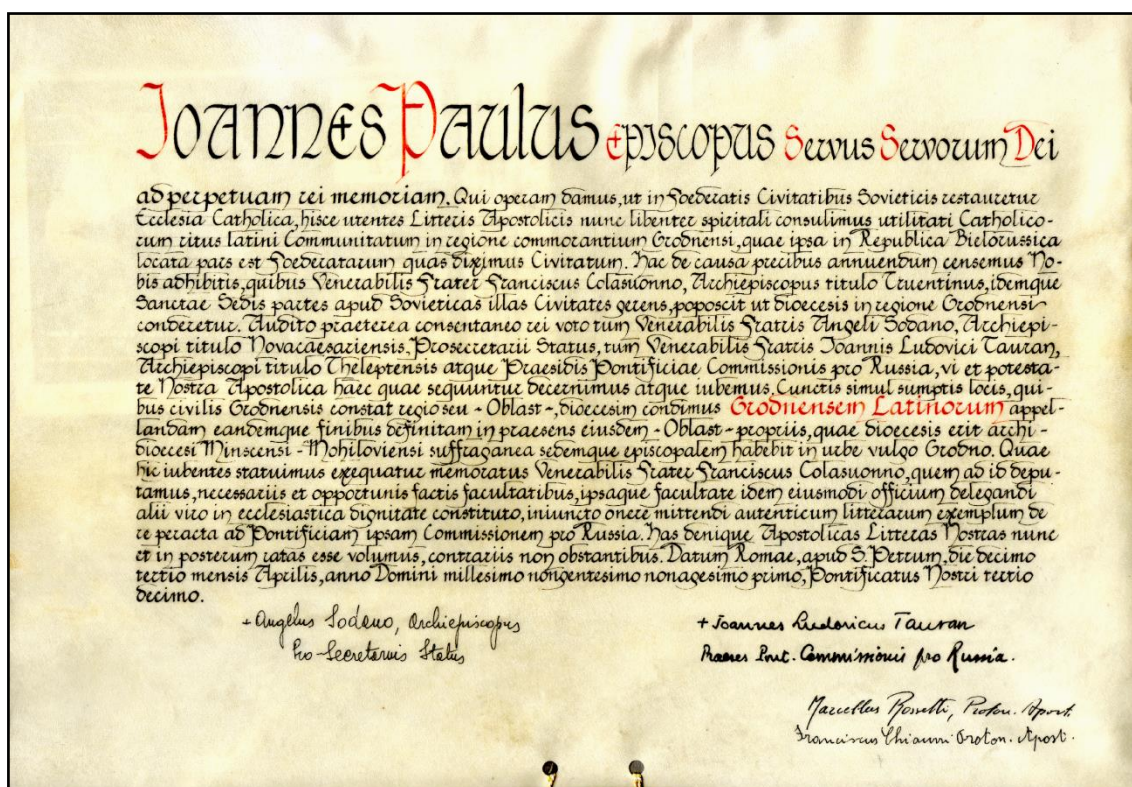 Ioannes Paulus Episcopus Servus Servorum Dei
ad perpetuam rei memoriam. Qui operam damus, ut in Foederatis Civitatibus Sovieticis restauretur
Ecclesia Catholica, hisce utentes Litteris Apostolicis nunc libenter spiritali consulimus utilitati Catholico-
rum ritus latini Communitatum in regione commorantium Grodnensi, quae ipsa in Republica Bielorussica
locata pars est Foederatarum quas diximus Civitatum. Hac de causa precibus annuendum censemus No-
bis adhibitis, quibus Venerabilis Frater Franciscus Colasuonno, Archiepiscopus titulo Truentinus, idemque
Sanctae Sedis partes apud Sovieticas illas Civitates gerens, poposcit ut dioecesis in regione Grodnensi
conderetur. Audito praeterea consentaneo rei voto tum Venerabilis Fratris Angeli Sodano, Archiepi-
scopi titulo Novacaesariensis, Prosecretarii Status, tum Venerabilis Fratris Ioannis Ludovici Tauran,
Archiepiscopi titulo Theleptensis atque Praesidis Pontificiae Commissionis pro Russia, vi et potesta-
te Nostra Apostolica haec quae sequuntur decernimus atque iubemus. Cunctis simul sumptis locis, qui-
bus civilis Grodnensis constat regio seu - Oblast -, dioecesim condimus Grodnensem Latinorum appel-
landam eandemque finibus definitam in praesens eiusdem - Oblast - propriis, quae dioecesis erit archi-
dioecesi Minscensi - Mohiloviensi suffraganea sedemque episcopalem habebit in urbe vulgo Grodno. Quae
hic iubentes statuimus exequatur memoratus Venerabilis Frater Franciscus Colasuonno, quem ad id depu-
tamus, necessariis et opportunis factis facultatibus, ipsaque facultate idem eiusmodi officium delegandi
alii viro in ecclesiastica dignitate constituto, iniuncto onere mittendi autenticum litterarum exemplum de
re peracta ad Pontificiam ipsam Commissionem pro Russia. Has denique Apostolicas Litteras Nostras nunc
et in posterum ratas esse volumus, contrariis non obstantibus. Datum Romae, apud S. Petrum, die decimo
tertio mensis Aprilis, anno Domini millesimo nongentesimo nonagesimo primo, Pontificatus Nostri tertio
decimo.
+ Angelus Sodano, Archiepiscopus
Pro-Secretarius Status
+ Ioannes Ludovicus Tauran
Praeses Pont. Commissionis pro Russia.
Marcellus Rossetti, Proton. Apost.
Franciscus Chiaurri Proton. Apost.